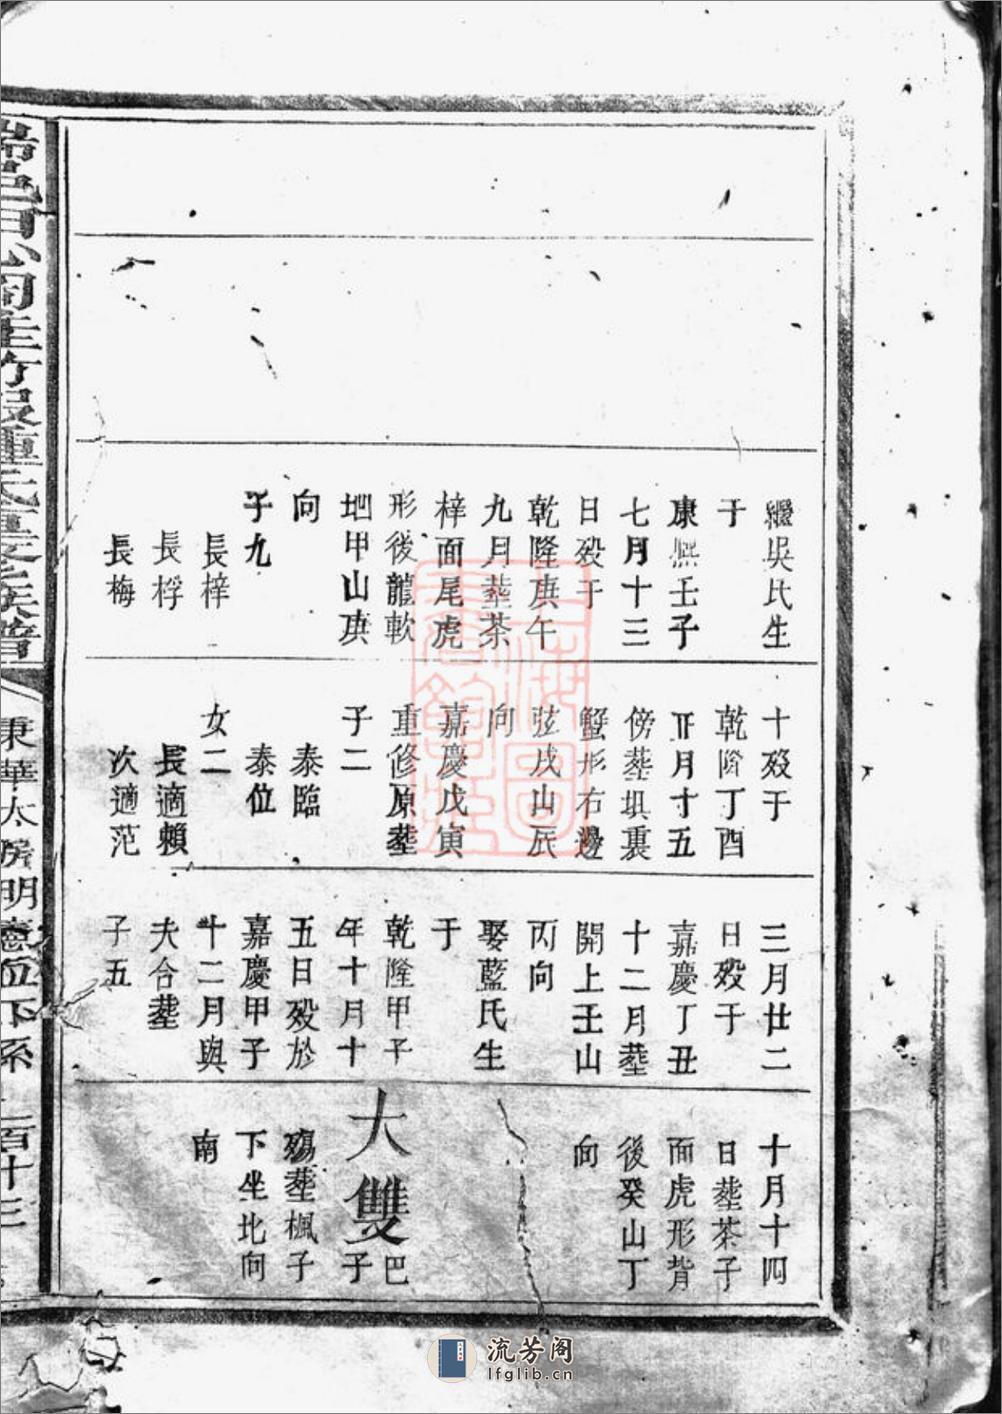 繼吳氏生
于
康熙壬子
七月十三
日歿于
乾隆庚午
九月塟茶
梓面尾虎
形後龍軟
地甲山庚
向
子九
長梓
長桴
長梅
十歿于
乾隆丁酉
正月十五
傍塟垻裏
蟹形右邊
弦戌山辰
向
嘉慶戊寅
重修原塟
子二
泰臨
泰位
女二
長適賴
次適范
三月廿二
日歿于
嘉慶丁丑
十二月塟
開上壬山
丙向
娶藍氏生
于
乾隆甲子
年十月十
五日歿於
嘉慶甲子
十二月與
夫合塟
子五
十月十四
日塟茶子
面虎形背
後癸山丁
向
大雙巴子
殤塟楓子
下坐北向
南
秉華太房明德位下系 二百十三
上海圖書館藏
流芳阁
lfglib.cn